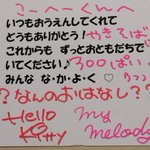 こーへーくんへ
いつもおうえんしてくれて
どうもありがとう！やきそば
これからも ずっとおともだちで
いてください♪300ぱい
みんな な・か・よ・く♡
？なんのおはなし？
Hello Kitty
My melody